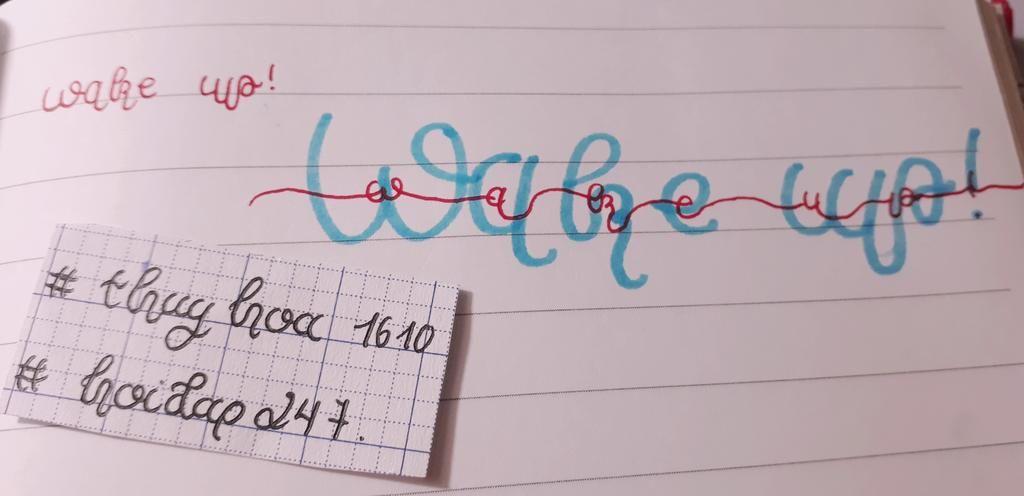 wake up!
Wake up!
wake up
# thuy hoa 1610
# hoidap247.